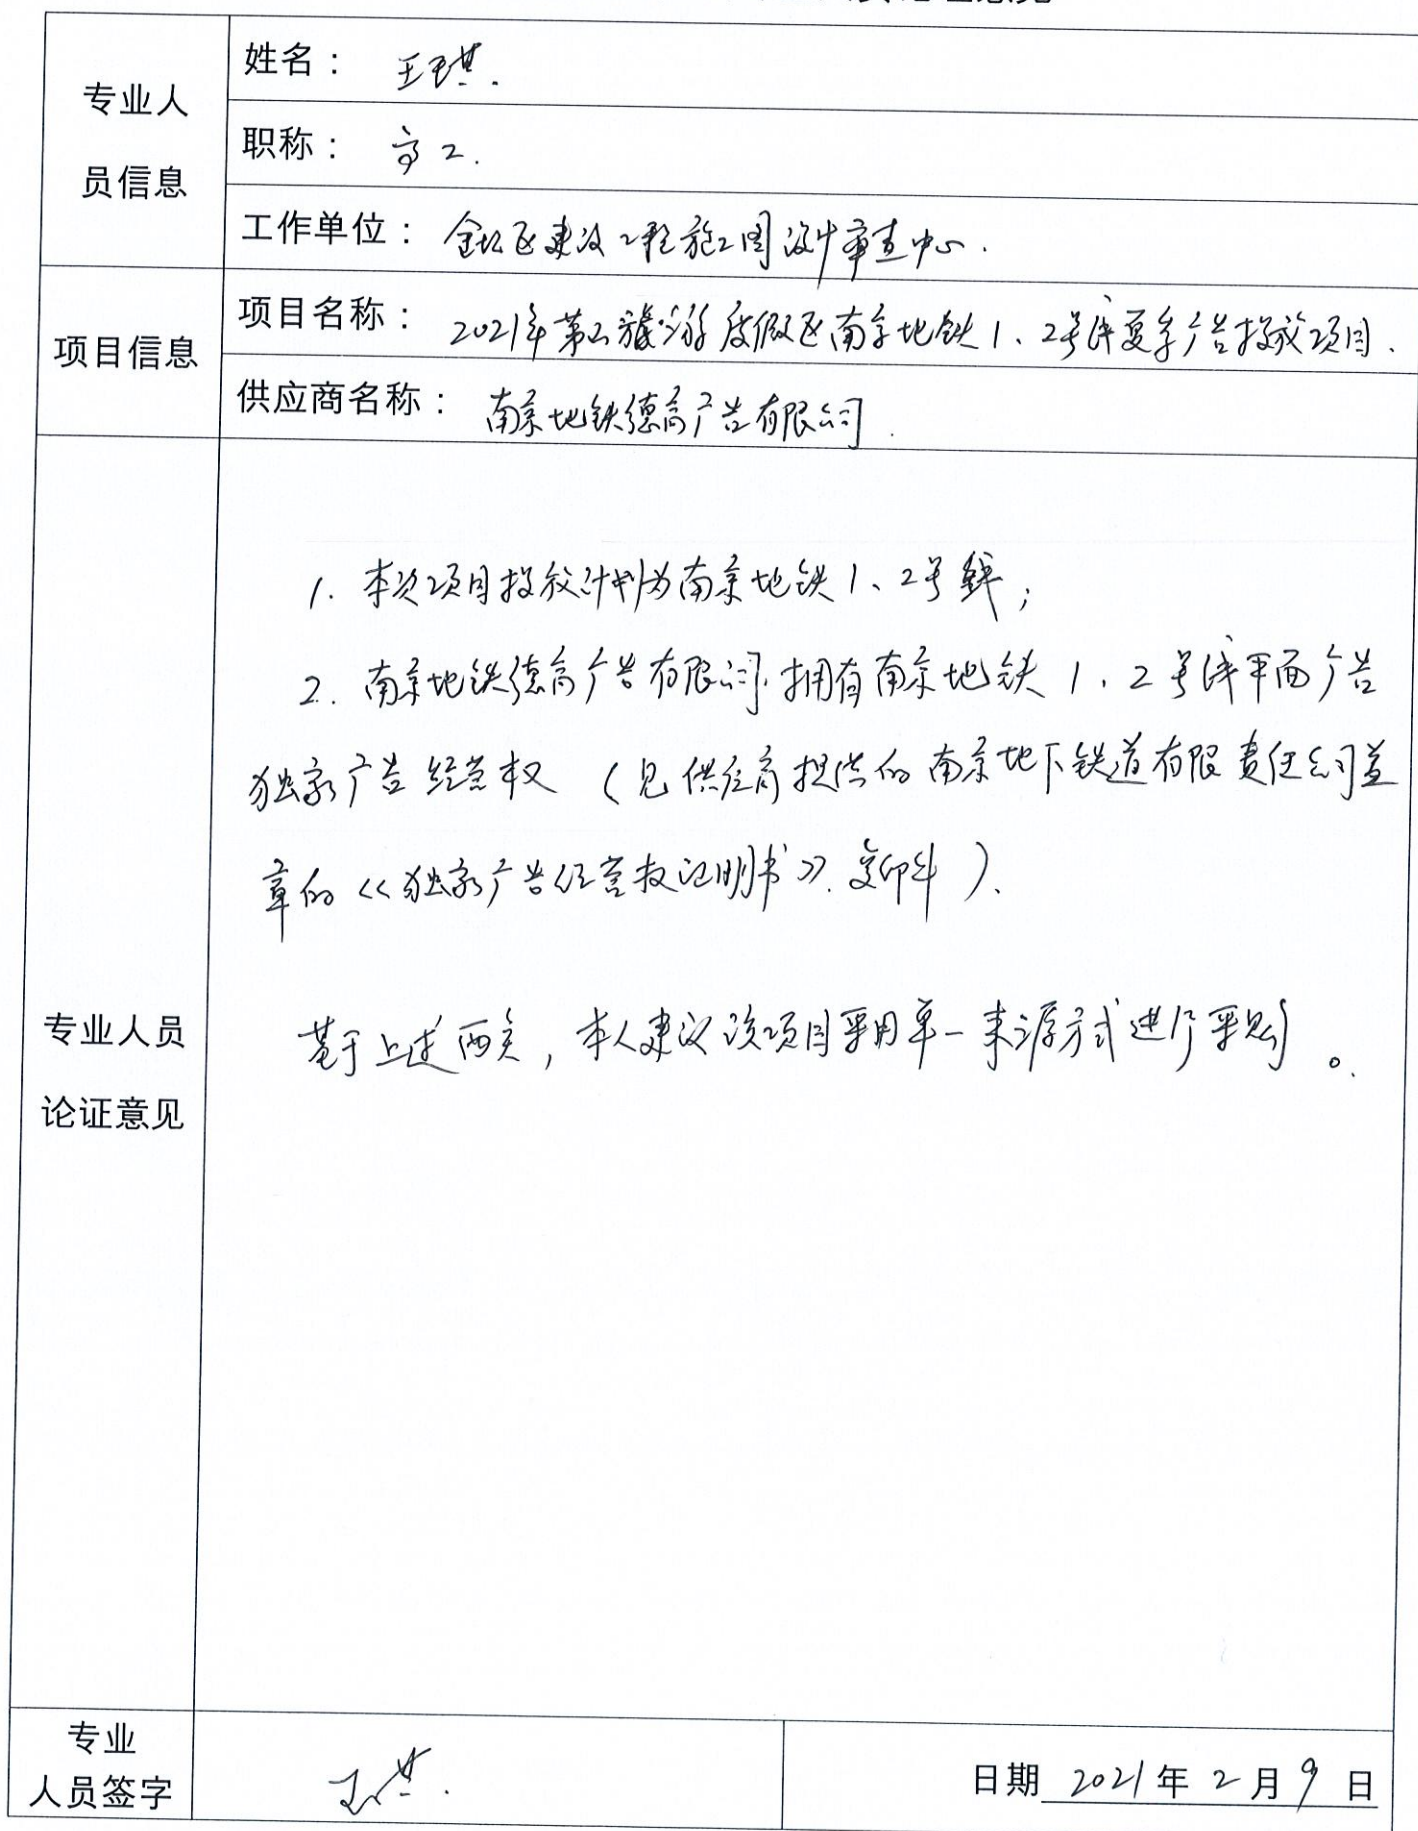 专业人
员信息
姓名：王琪.
职称：高工.
工作单位：金坛区建设工程施工图设计审查中心.
项目信息
项目名称：2021年茅山旅游度假区南京地铁1、2号线夏季广告投放项目.
供应商名称：南京地铁德高广告有限公司.
专业人员
论证意见
1. 本次项目投放计划为南京地铁1、2号线；
2. 南京地铁德高广告有限公司拥有南京地铁1、2号线平面广告
独家广告经营权（见供应商提供的南京地下铁道有限责任公司盖
章的《独家广告经营权证明书》复印件）.
基于上述两点，本人建议该项目采用单一来源方式进行采购。
专业
人员签字
王琪.
日期 2021年2月9日